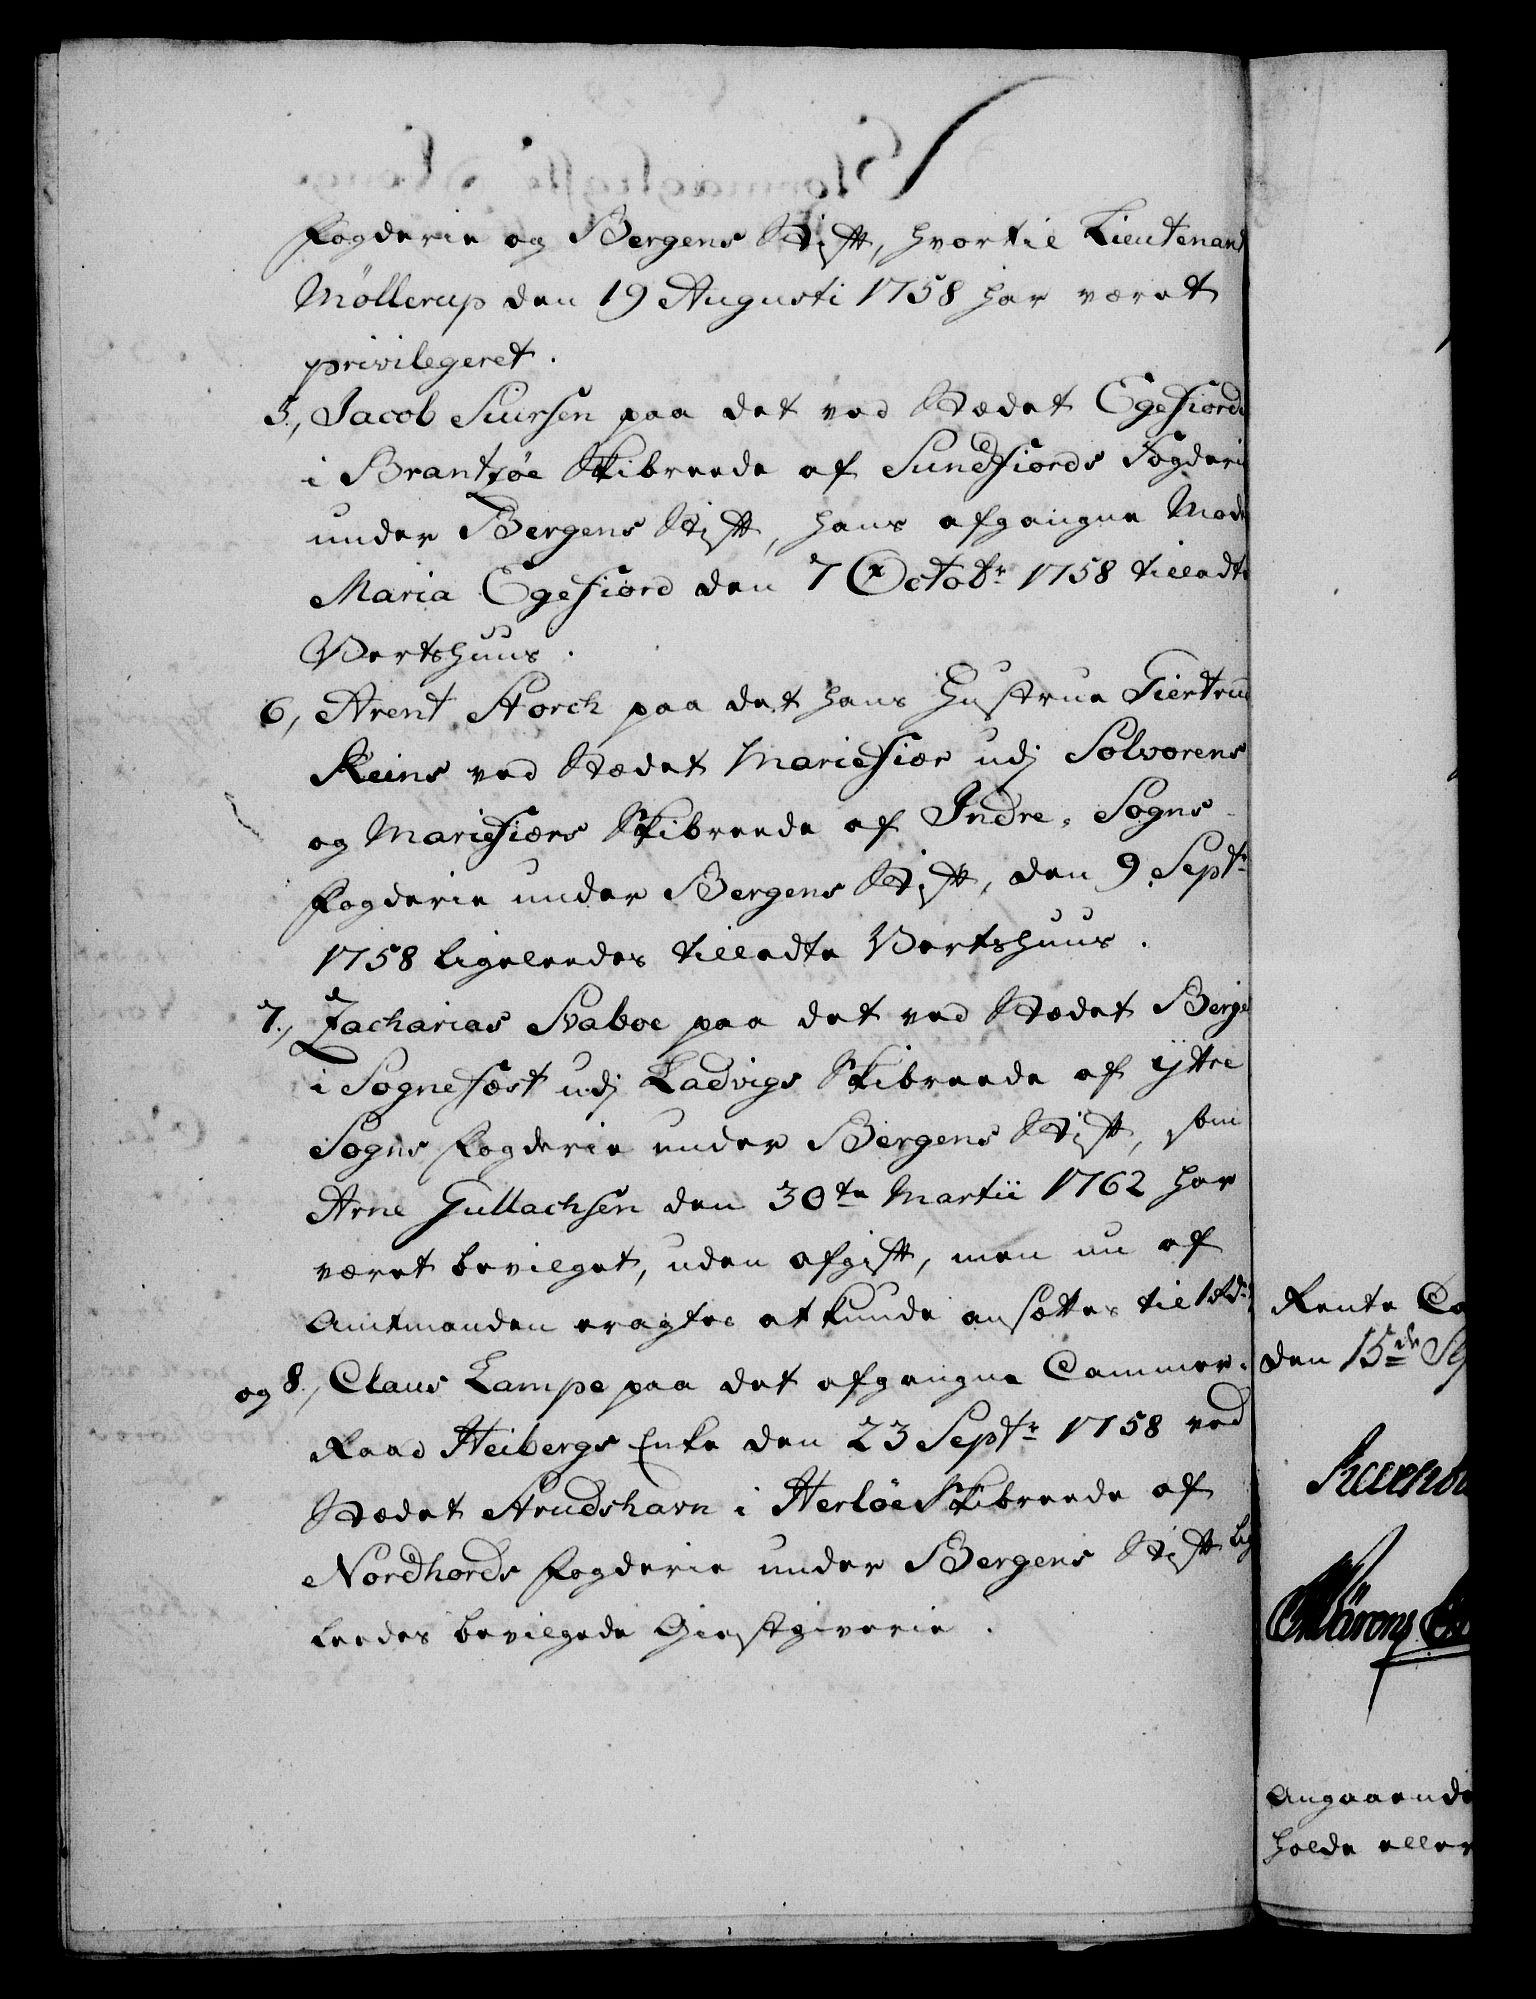 Fogderie og Bergens Stift, hvortil Lieutenant
Möllerup den 19 Augusti 1758 har været
privilegeret.
5., Jacob Siursen paa det ved Stædet Egefiord
i Brantzöe Skibreede af Sundfiords Fogderie
under Bergens Stift, hans afgangne Mode
Maria Egefiord den 7 Octobr 1758 tilladte
Vertshuus.
6, Arent Storch paa det hans Hustrue Giertrud
Steins ved Stædet Mariefiær udj Solvorens
og Mariefiærs Skibreede af Indre-Sogns-
Fogderie under Bergens Stift, den 9 Septr
1758 ligeleedes tilladte Vertshuus.
7., Zacharias Svaboe paa det ved Stædet Berge
i Sognefæst udj Ladvigs Skibreede af ÿttre
Sogns Fogderie under Bergens Stift, som
Arne Gullachsen den 30te Martii 1762 har
været bevilget, uden afgift, men nu af
Amtmanden eragtes at kunde ansættes til 1 Rdr
og 8., Claus Lampe paa det afgangne Cammer-
Raad Heibergs Enke den 23 Septr 1758 ved
Stædet Strudshavn i Herlöe Skibreede af
Nordhords Fogderie under Bergens Stift lige
leedes bevilgede Giestgiverie.
Rente Ca
den 15de Se
Angaaende
holde eller